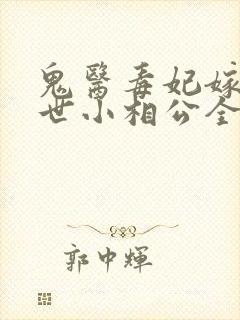 鬼醫毒妃嫁
世小相公全
郭中輝